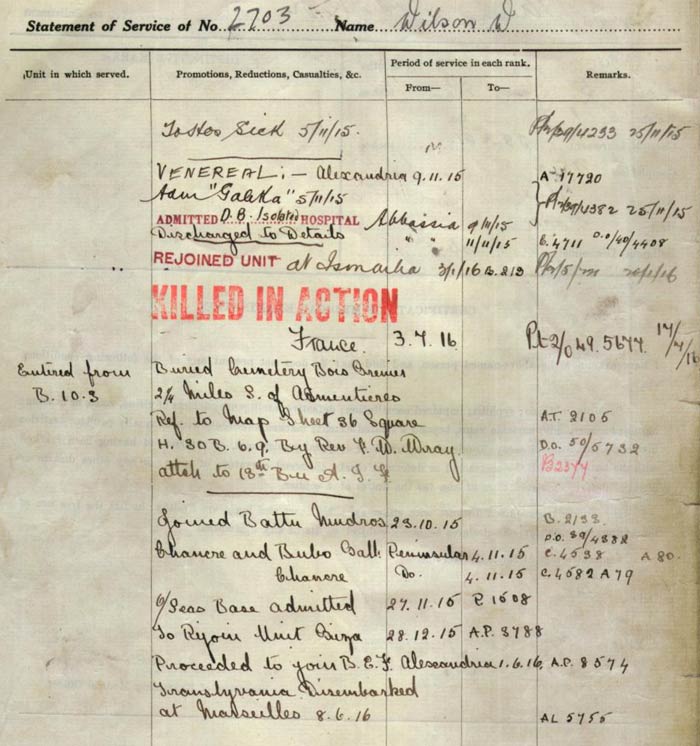 Statement of Service of No. 2703 Name Wilson W
Unit in which served. Promotions, Reductions, Casualties, &c. Period of service in each rank. Remarks.
From— To—
To Hos Sick 5/11/15. 25/11/15
VENEREAL: — Alexandria 9.11.15 A 17720
Adm "Galeka" 5/11/15 25/11/15
ADMITTED D.B. Isolated HOSPITAL Abbassia 9/11/15
Discharged to Details " " 11/11/15 E. 4711 D.O/40/4408
REJOINED UNIT at Ismailia 3/1/16 B. 213
KILLED IN ACTION
France. 3.7.16 Pt 2/O 49. 5677. 17/7/16
Entered from Buried Cemetery Bois Grenier
B. 103 2¼ Miles S. of Armentieres
Ref. to Map Sheet 36 Square A.T. 2105
H. 30 B. 6.9. By Rev F. W. Wray D.O. 50/5732
attch to 13th Bn A. I. F. B2377
Joined Battn Mudros 23.10.15 B. 2133
D.O. 39/4382
Chancre and Bubo Gall: Peninsular 4.11.15 C. 4538 A 80.
Chancre Do. 4.11.15 C. 4582 A 79
O/Seas Base admitted 27.11.15 P. 1508
To Rejoin Unit Giza 28.12.15 A.P. 3788
Proceeded to join B.E.F. Alexandria 1.6.16. A.P. 8574
Transylvania Disembarked
at Marseilles 8.6.16 AL 5755